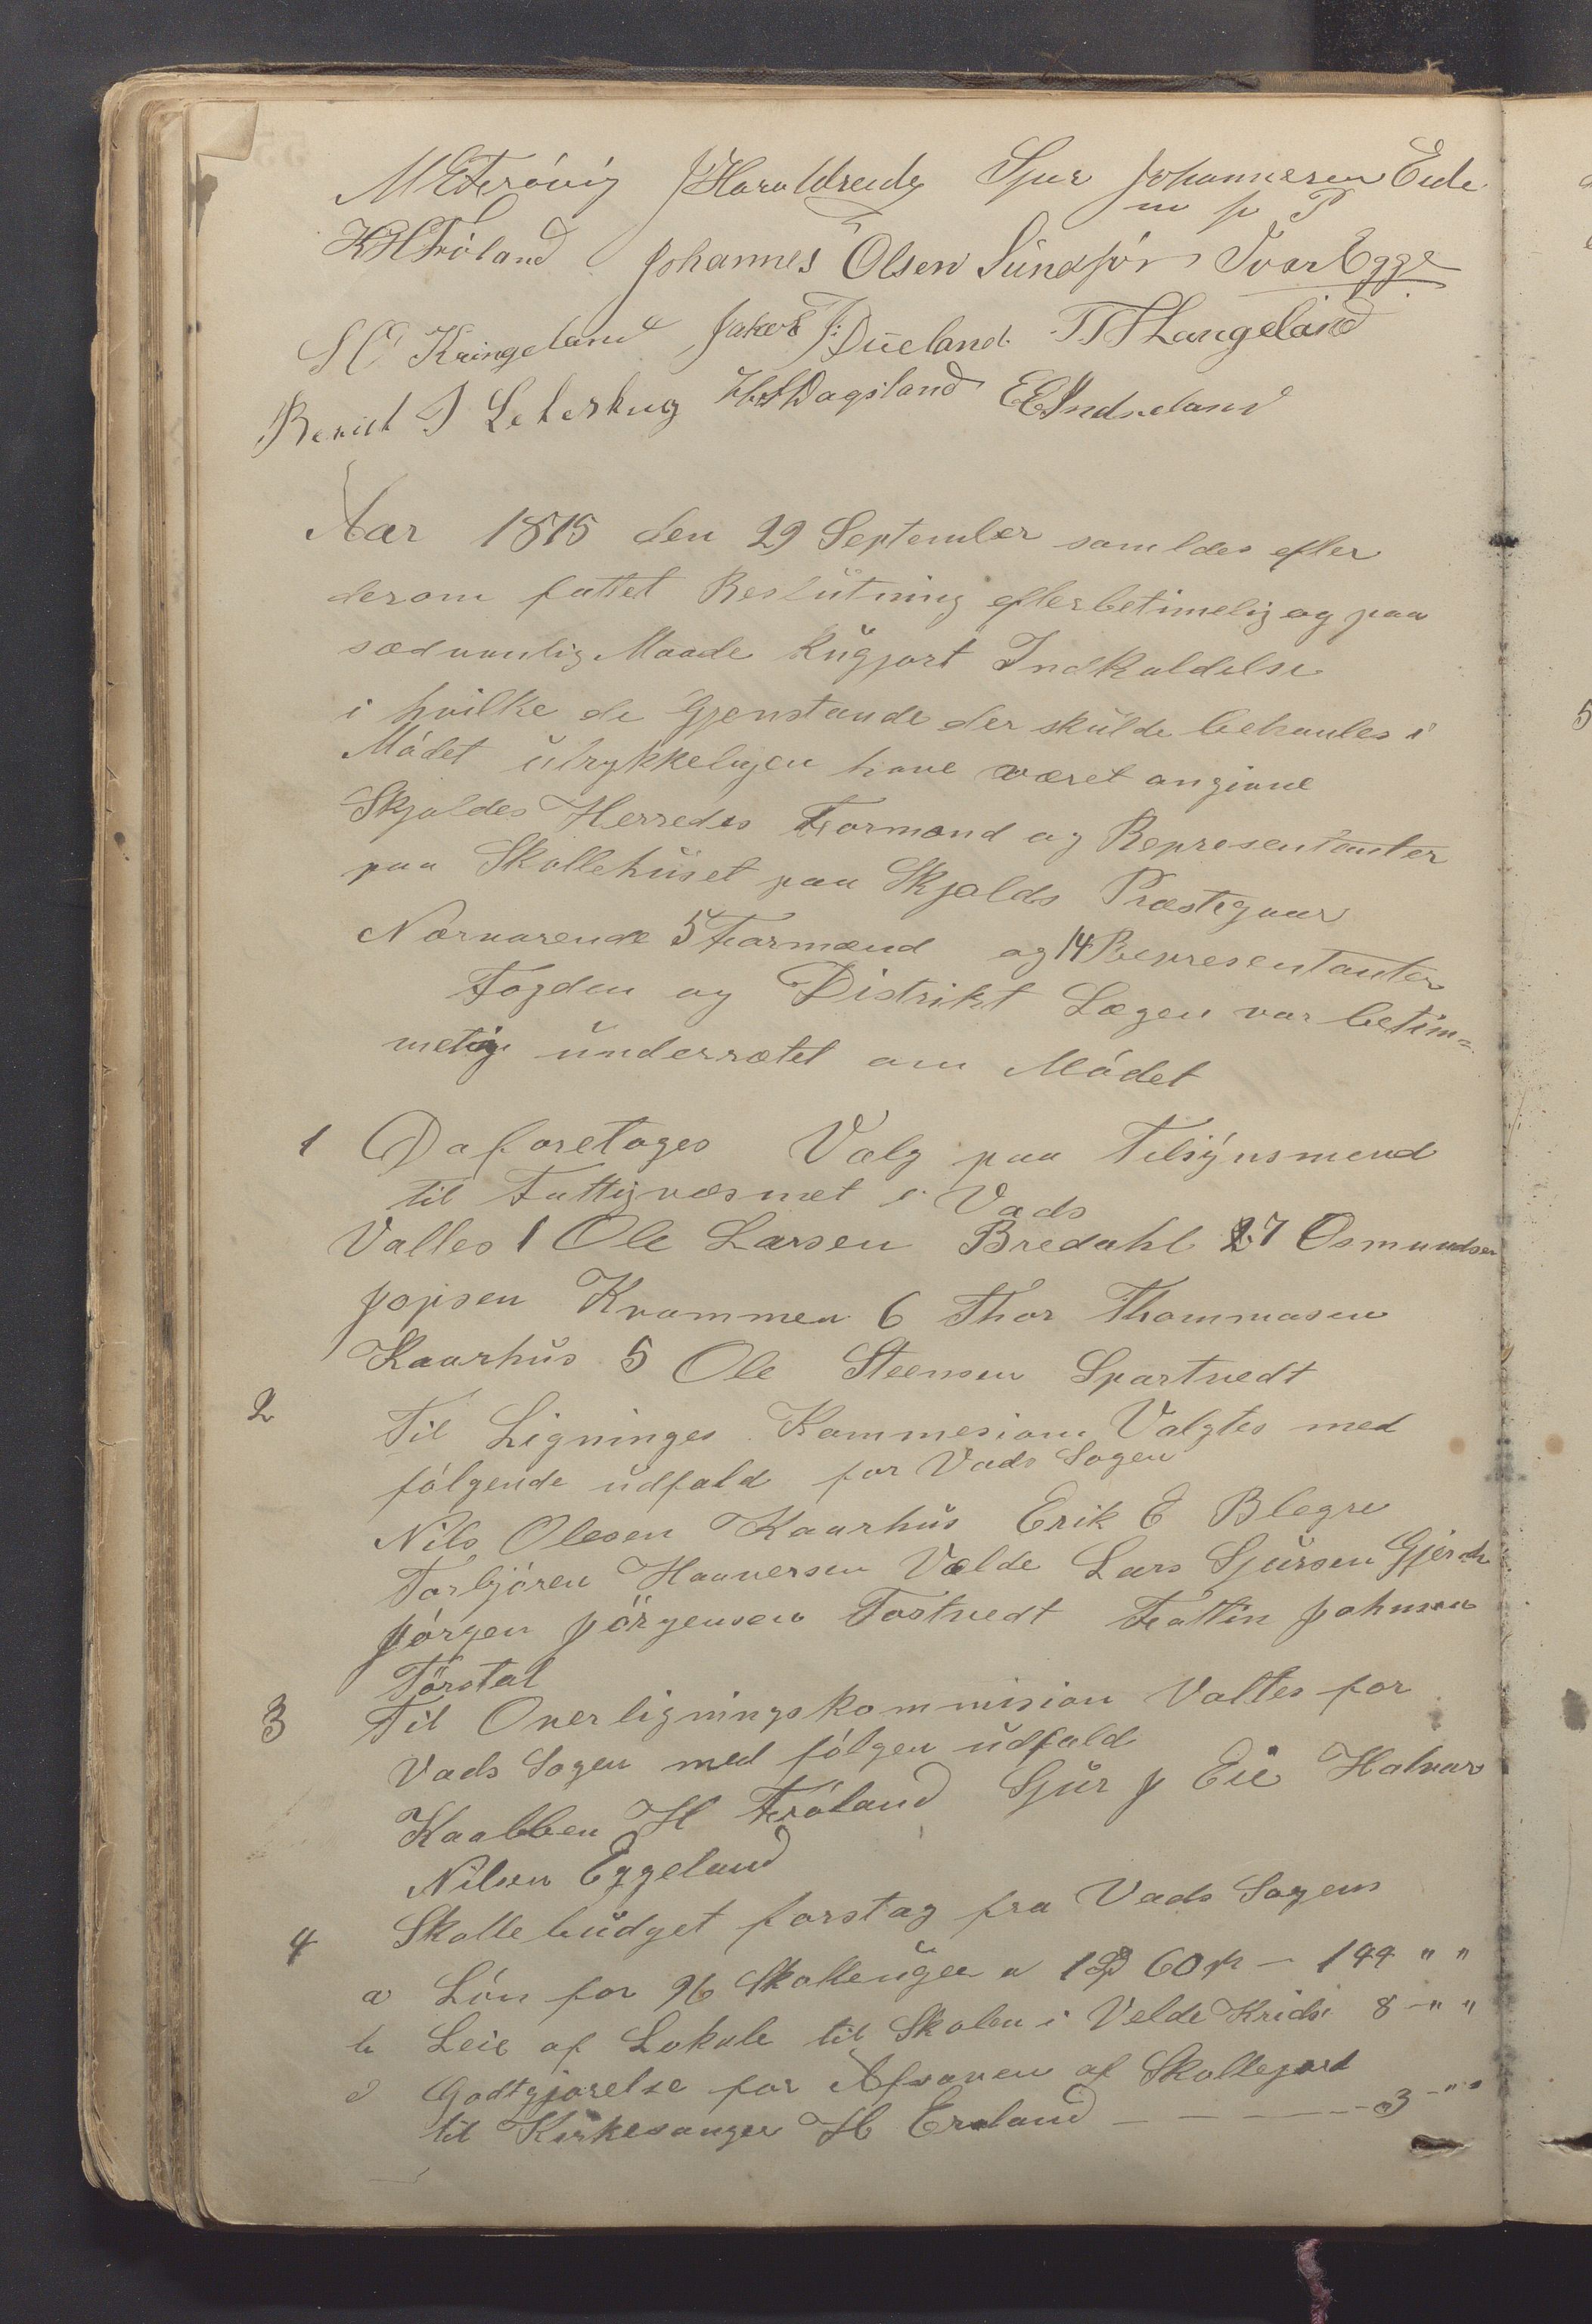 Sjur Johannesen Eide
m p P
K H Fröland Johannes Olsen Sündför Ivar Egge
S O Kringeland Jakob J: Düeland. T T Langeland
Bervil J Leterkug Dagsland E E Indreland
Aar 1875 den 29 September samldes efter
derom fattet Beslütning efter betimelig og paa
sædvanlig Maade kügjort Indkaldelse
i hvilke de Gjenstande der skülde behanles i
Mödet ütrykkeligen have været angivne
Skjoldes Herredes Formænd og Representanter
paa Skollehüset paa Skjolds Præstegaar
Nærværende 5 Formænd og 14 Representanter
Fogden og Distrikt Lægen var betim=
melig ünderrætet om Mödet
1 Da foretoges Valg paa Tilsynsmænd
til Fattigvæsnet i Vads
Valtes 1 Ole Larsen Bredahl 27 Osmundsen
Jopsen Krammer 6 Thor Thommasen
Kaarhüs 5 Ole Steensen Spartvedt
2 Til Ligninges Kommesion Valgtes med
fölgende üdfald for Vads Sogen
Nils Olesen Kaarhüs Erik E Blegre
Torbjören Haaversen Vælde Lars Sjürsen Gjerde
Jörgen Jörgensen Tostvedt Fattin Johnsen
Törstal
3 Til Overligningskommision Valtes for
Vads Sogen med fölgen üdfald
Kaabben H Fröland Sjür J Eie Halvar
Nilsen Eggeland
4 Skollebüdget forstag fra Vads Sogens
a Lön for 96 Skolleüger a 1 Spd 60 sk - 144 " "
b Leie af Lokale til Skolen i Velde Krids 8 - " "
d Godtgjörelse for Afsavn af Skollejord
til Kirkesanger H Erland - - - - - 3 - " "